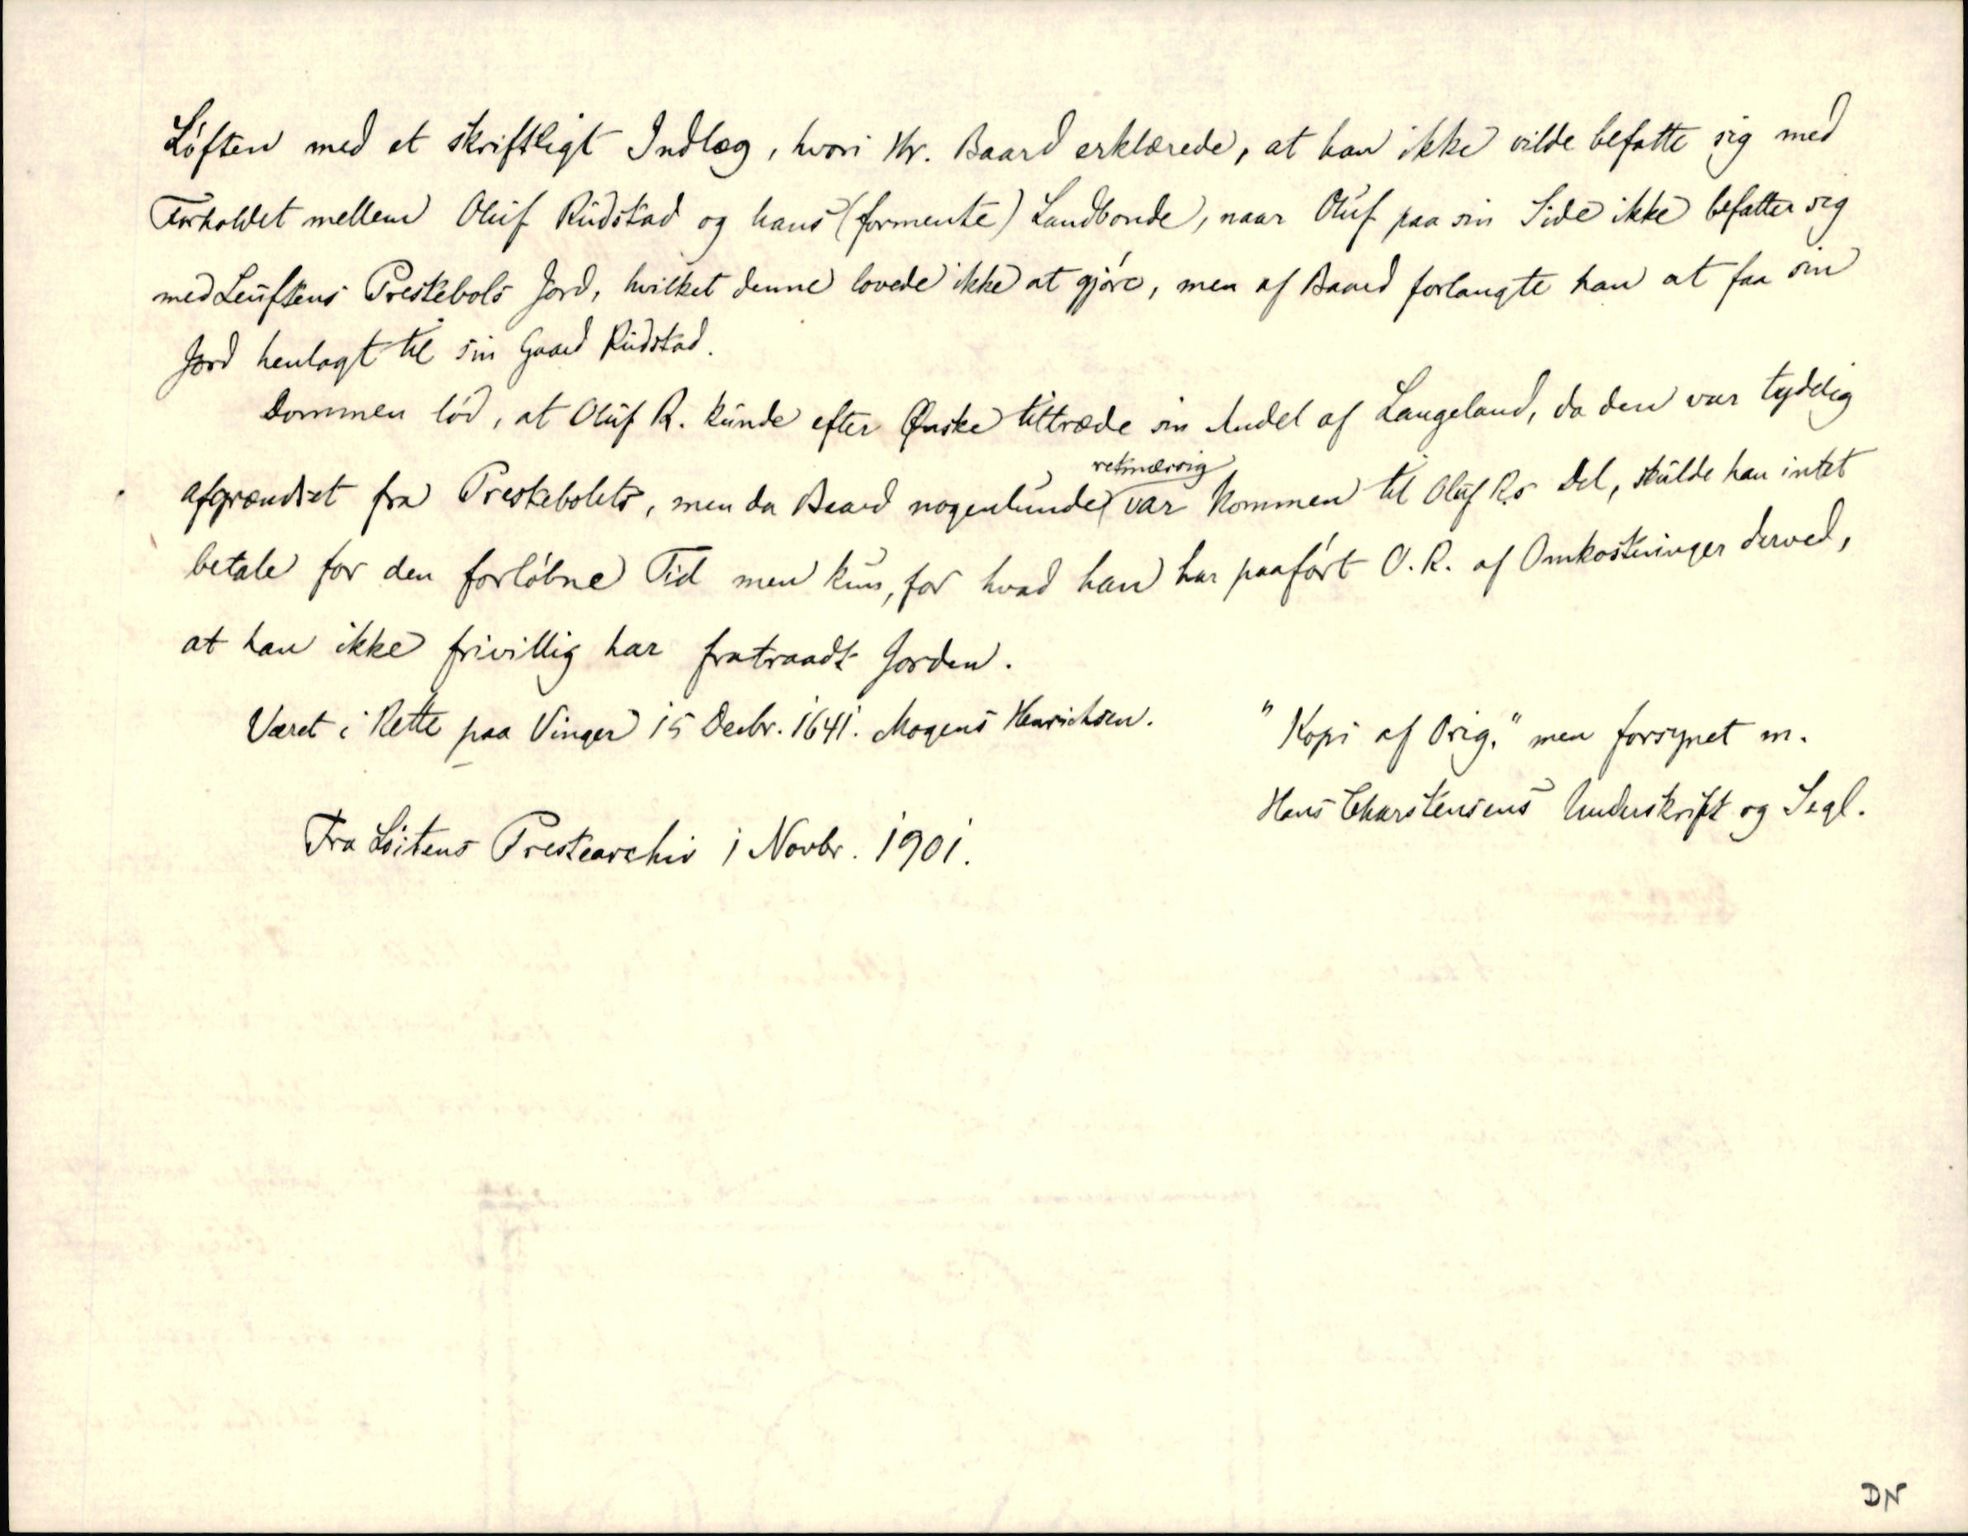 Løften med et skriftligt Indlæg, hvori Hr. Baard erklærede, at han ikke vilde befatte sig med
Forholdet mellem Oluf Rudstad og hans (formente) Landbonde, naar Oluf paa sin Side ikke befatter sig
med Leuftens Prestebols Jord, hvilket denne lovede ikke at gjøre, men af Baard forlangte han at faa sin
Jord henlagt til sin Gaard Rudstad.
Dommen lød, at Oluf R. kunde efter Ønske tiltræde sin Andel af Langeland, da den var tydelig
afgrændset fra Prestebolets, men da Baard nogenlunde retmæssig var kommen til Oluf R.s Del, skulde han intet
betale for den forløbne Tid men kun, for hvad han har paaført O. R. af Omkostninger derved,
at han ikke frivillig har fratraadt Jorden.
Været i Rette paa Vinger 15 Decbr. 1641. Mogens Henrichsen.
"Kopi af Orig." men forsynet m.
Hans Charstensens Underskrift og Segl.
Fra Löitens Prestearchiv i Novbr. 1901.
DN